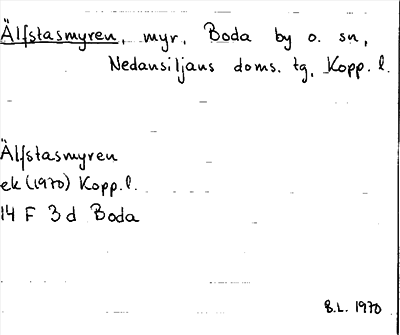 Älfstasmyren, myr, Boda by o. sn,
Nedansiljans doms. tg, Kopp. l.
Älfstasmyren
ek (1970) Kopp. l.
14 F 3 d Boda
B.L. 1970